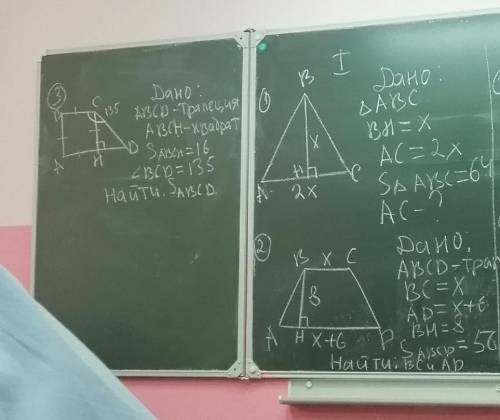 3
B C 135
A H D
Дано:
ABCD-трапеция
ABCH-квадрат
SABCH=16
∠BCD=135
Найти: SABCD
I
1
B
x
A H C
2x
Дано:
△ABC
BH=x
AC=2x
S△ABC=64
AC-?
2
B x C
8
A H x+6 D
Дано:
ABCD-трап
BC=x
AD=x+6
BH=8
SABCD=56
Найти: BC и AD